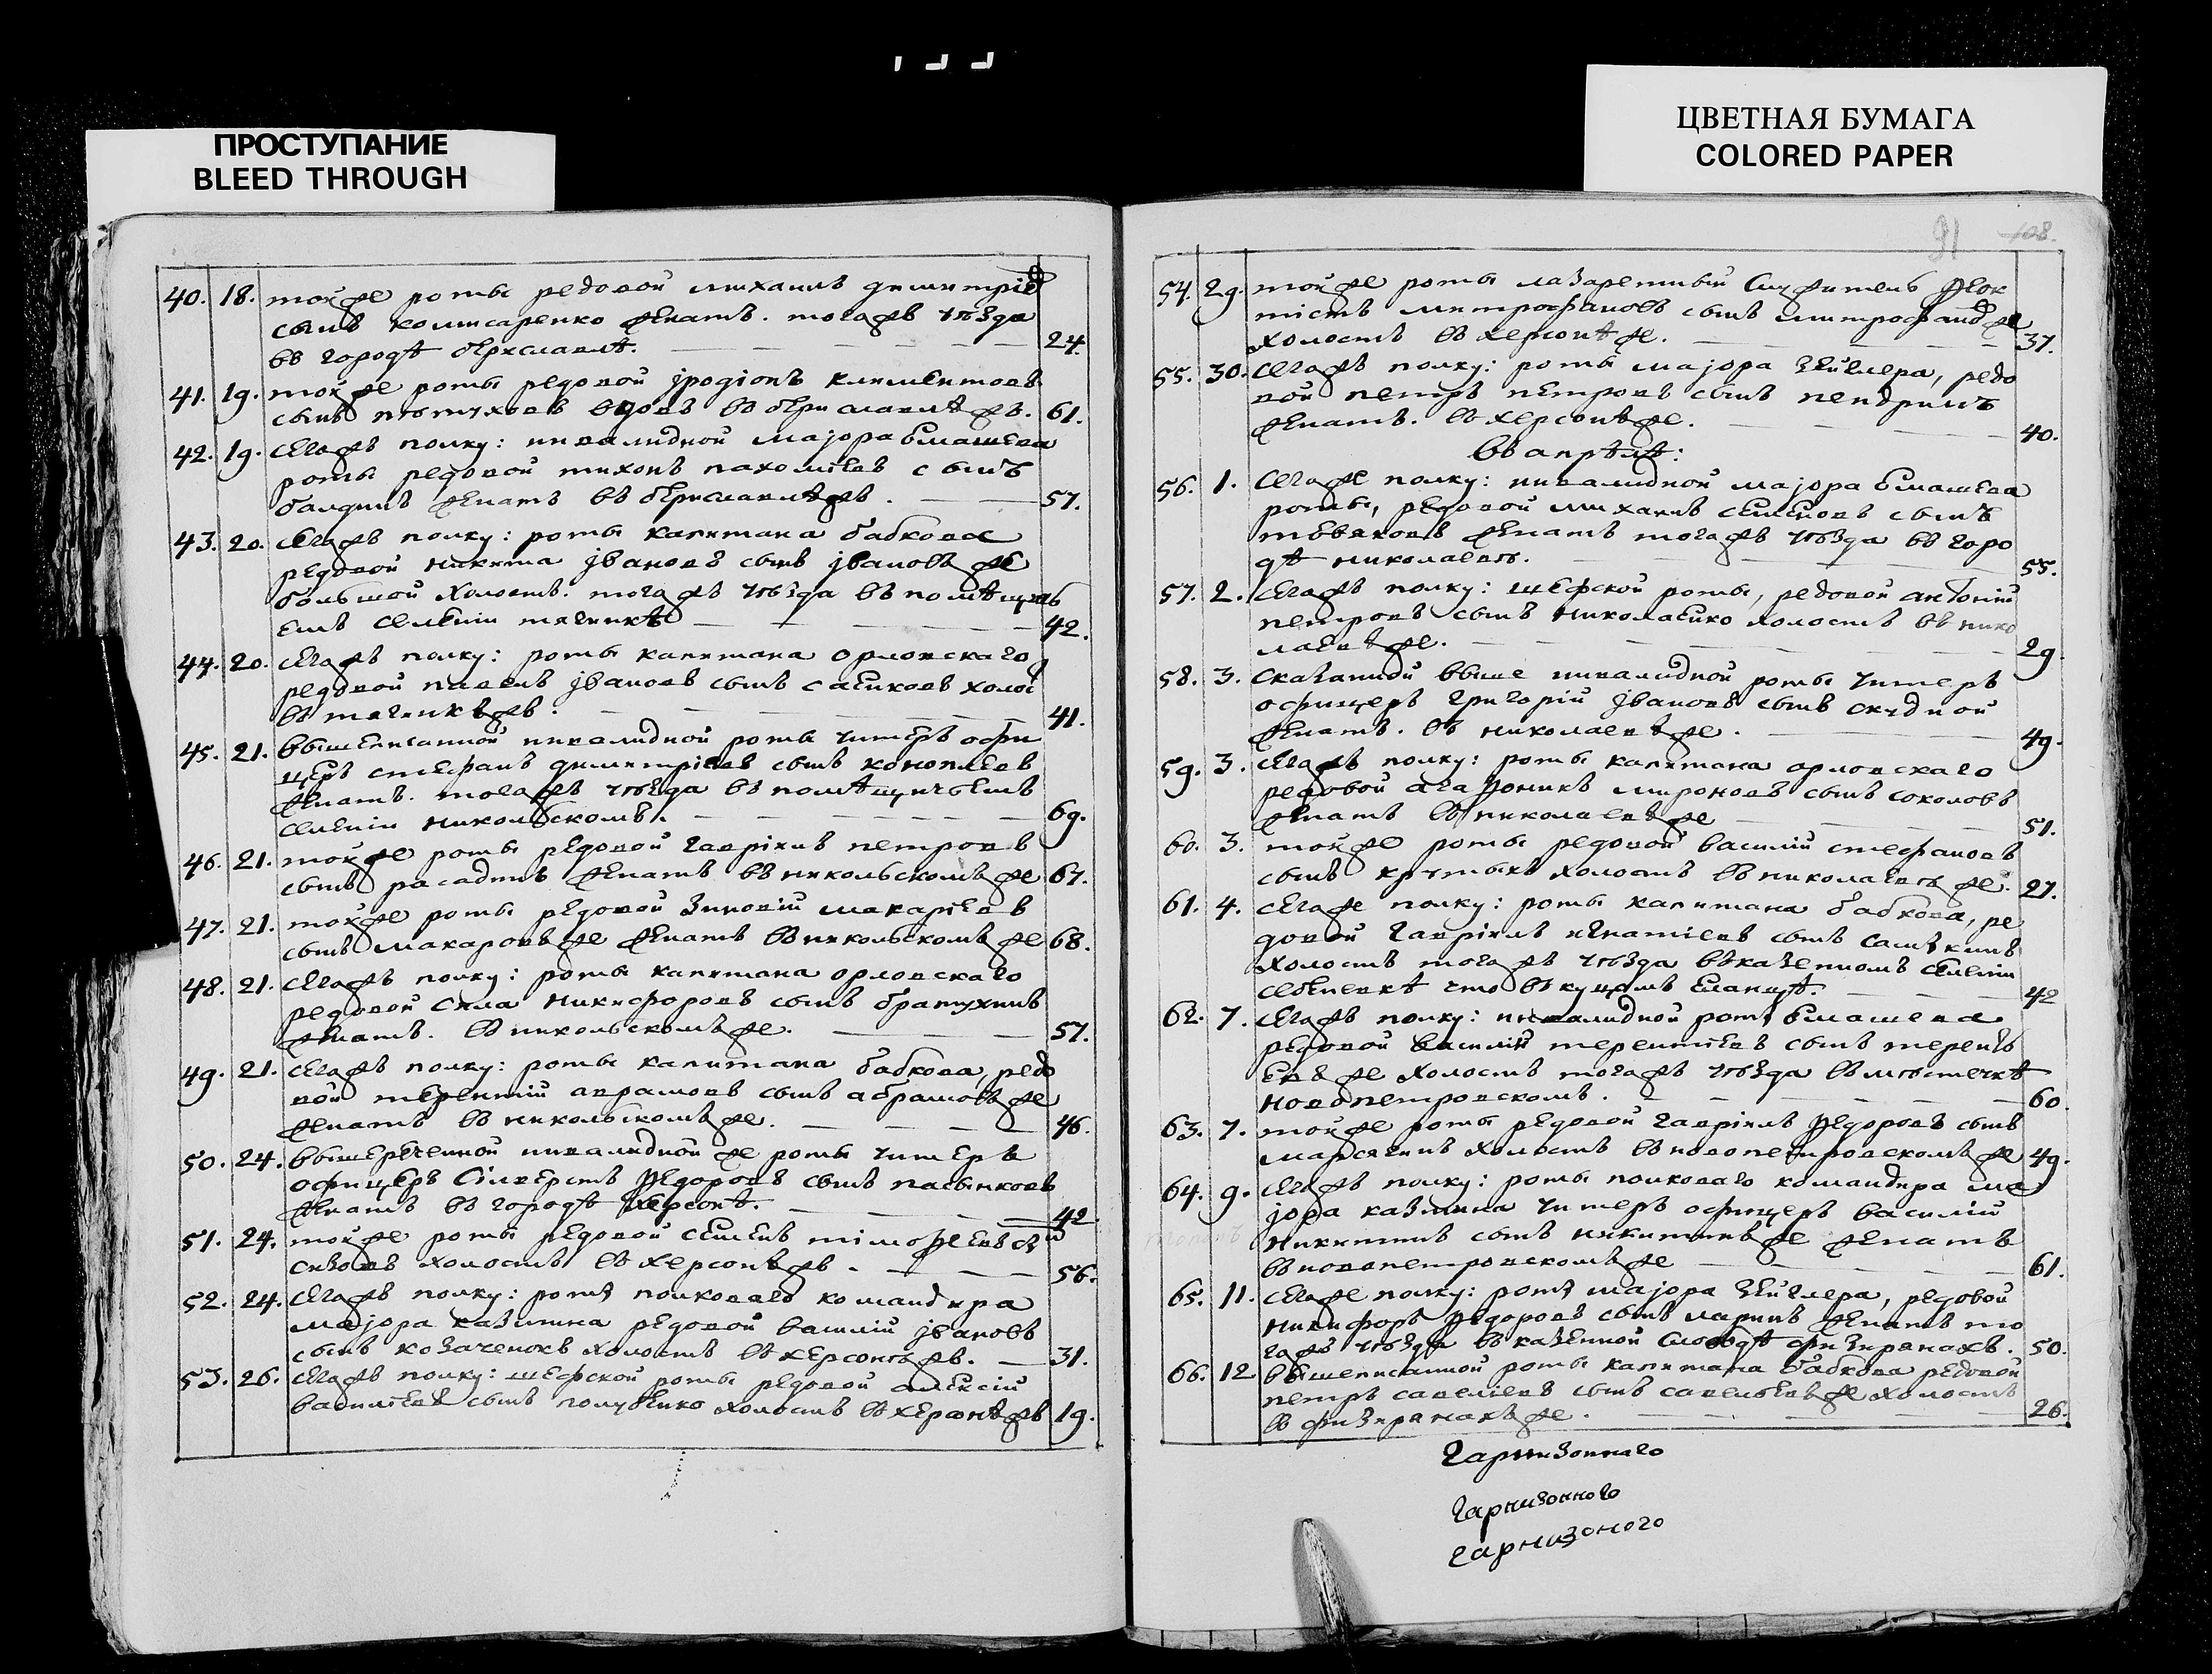 ПРОСТУПАНИЕ
BLEED THROUGH
ЦВЕТНАЯ БУМАГА
COLORED PAPER
91 108.
40. 18. тойже роты редовой михаилъ димитріев
сынъ комисаренко женатъ. тогожъ уѣзда
въ городѣ бериславлѣ. 24.
41. 19. тойже роты редовой іродіонъ климентовъ
сынъ пѣтуховъ вдовъ въ бериславлѣжъ. 61.
42. 19. сегожъ полку: инвалидной маіора
роты редовой тихонъ пахоміевъ сынъ
балдинъ женатъ въ бериславлѣжъ. 57.
43. 20. сегожъ полку: роты капитана бабкова
редовой никита івановъ сынъ івановъ же
большой холостъ. тогожъ уѣзда въ помѣщичь
емъ селеніи тягинкѣ 42.
44. 20. сегожъ полку: роты капитана орловскаго
редовой павелъ івановъ сынъ саенковъ холос
въ тягинкѣжъ. 41.
45. 21. вышеписанной инвалидной роты унтеръ офи
церъ стефанъ димитріевъ сынъ коноплевъ
женатъ. тогожъ уѣзда въ помѣщичьемъ
селеніи никольскомъ. 69.
46. 21. тойже роты редовой гавріилъ петровъ
сынъ расадинъ женатъ въ никольскомъ же 67.
47. 21. тойже роты редовой зиновій макаріевъ
сынъ макаровъ же женатъ въ никольскомъ же 68.
48. 21. сегожъ полку: роты капитана орловскаго
редовой сила никифоровъ сынъ братухинъ
женатъ. въ никольскомъ же. 57.
49. 21. сегожъ полку: роты капитана бабкова, редо
вой терентій аврамовъ сынъ абрамовъ же
женатъ въ никольскомъ же. 46.
50. 24. вышереченной инвалидной же роты унтеръ
офицеръ сілверстъ ѳедоровъ сынъ пасынковъ
женатъ въ городѣ херсонѣ. 42.
51. 24. тойже роты редовой семенъ тімоѳеевъ сын
сизовъ холостъ въ херсонѣжъ. 56.
52. 24. сегожъ полку: роты полковаго командира
маіора казмина редовой василій івановъ
сынъ козаченокъ холостъ въ херсонѣжъ. 31.
53. 26. сегожъ полку: шефской роты редовой алексій
василіевъ сынъ голубенко холостъ въ херсонѣжъ 19.
54. 29. тойже роты лазаретный служитель ѳеок
тістъ митрофановъ сынъ митрофановже
холостъ въ херсонѣже. 37.
55. 30. сегожъ полку: роты маіора зейглера, редо
вой петръ петровъ сынъ
женатъ. въ херсонѣже. 40.
въ апрѣлѣ:
56. 1. сегоже полку: инвалидной маіора
роты, редовой михаилъ семеновъ сынъ
женатъ тогожъ уѣзда въ горо
дѣ николаевѣ. 55.
57. 2. сегожъ полку: шефской роты, редовой антоній
петровъ сынъ николаенко холостъ въ нико
лаевѣже. 29.
58. 3. сказанной выше инвалидной роты унтеръ
офицеръ григорій івановъ сынъ скудной
женатъ. въ николаевѣже. 49.
59. 3. сегожъ полку: роты капитана орловскаго
редовой агаѳоникъ мироновъ сынъ соколовъ
женатъ въ николаевѣже 51.
60. 3. тойже роты редовой василій стефановъ
сынъ крутыхъ холостъ въ николаевѣ же. 27.
61. 4. сегоже полку: роты капитана бабкова, ре
довой гавріилъ игнатіевъ сынъ
холостъ тогожъ уѣзда въ казенномъ селеніи
себеневкѣ что въ 42
62. 7. сегожъ полку: инвалидной роты
редовой василій терентіевъ сынъ теренть
евъ же холостъ тогожъ уѣзда въ мѣстечкѣ
новопетровскомъ. 60.
63. 7. тойже роты редовой гавріилъ ѳедоровъ сынъ
марсягинъ холостъ въ новопетровскомъ же 49.
64. 9. сегожъ полку: роты полковаго командира ма
іора казмина унтеръ офицеръ василій
никитинъ сынъ никитинъ же женатъ
въ новопетровскомъ же 61.
65. 11. сегоже полку: роты маіора зейглера, редовой
никифоръ ѳедоровъ сынъ ларинъ женатъ то
гожъ уѣзда въ казенной слободѣ 50.
66. 12 вышеписанной роты капитана бабкова редовой
петръ савеліевъ сынъ савельевъ же холостъ
26.
Гарнизоннаго
Гарнизонного
гарнизоного